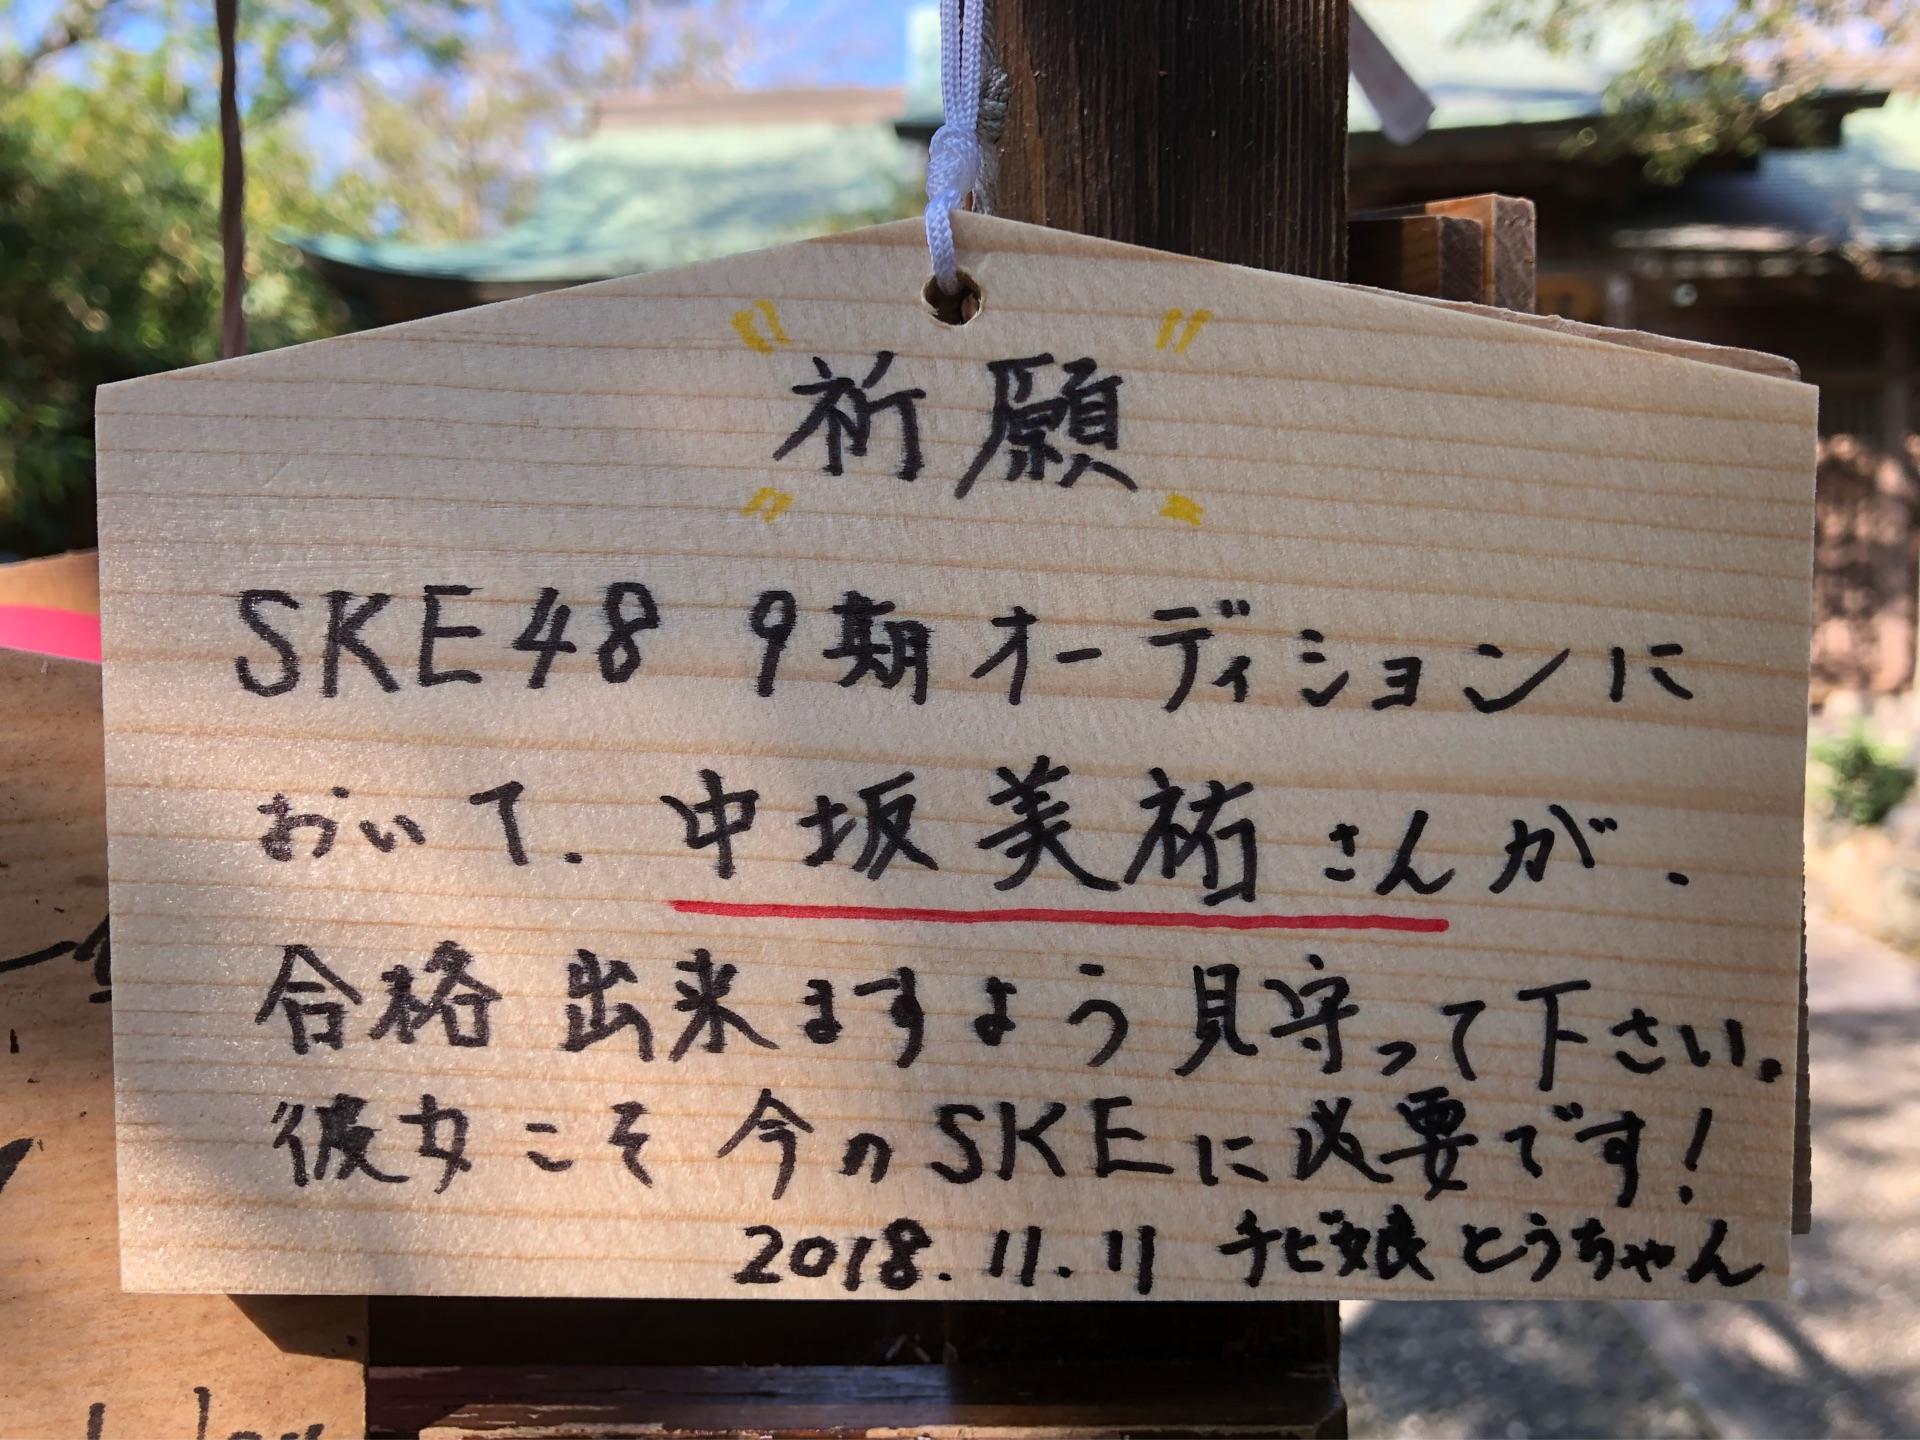 祈願
SKE48 9期オーディションに
おいて、中坂美祐さんが、
合格出来ますよう見守って下さい。
彼女こそ今のSKEに必要です!
2018.11.11 チビ娘とうちゃん